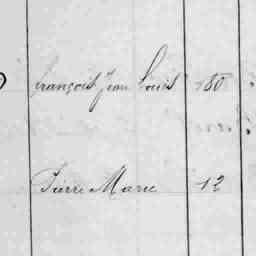 François Jean Louis 180
Pierre Marie 12